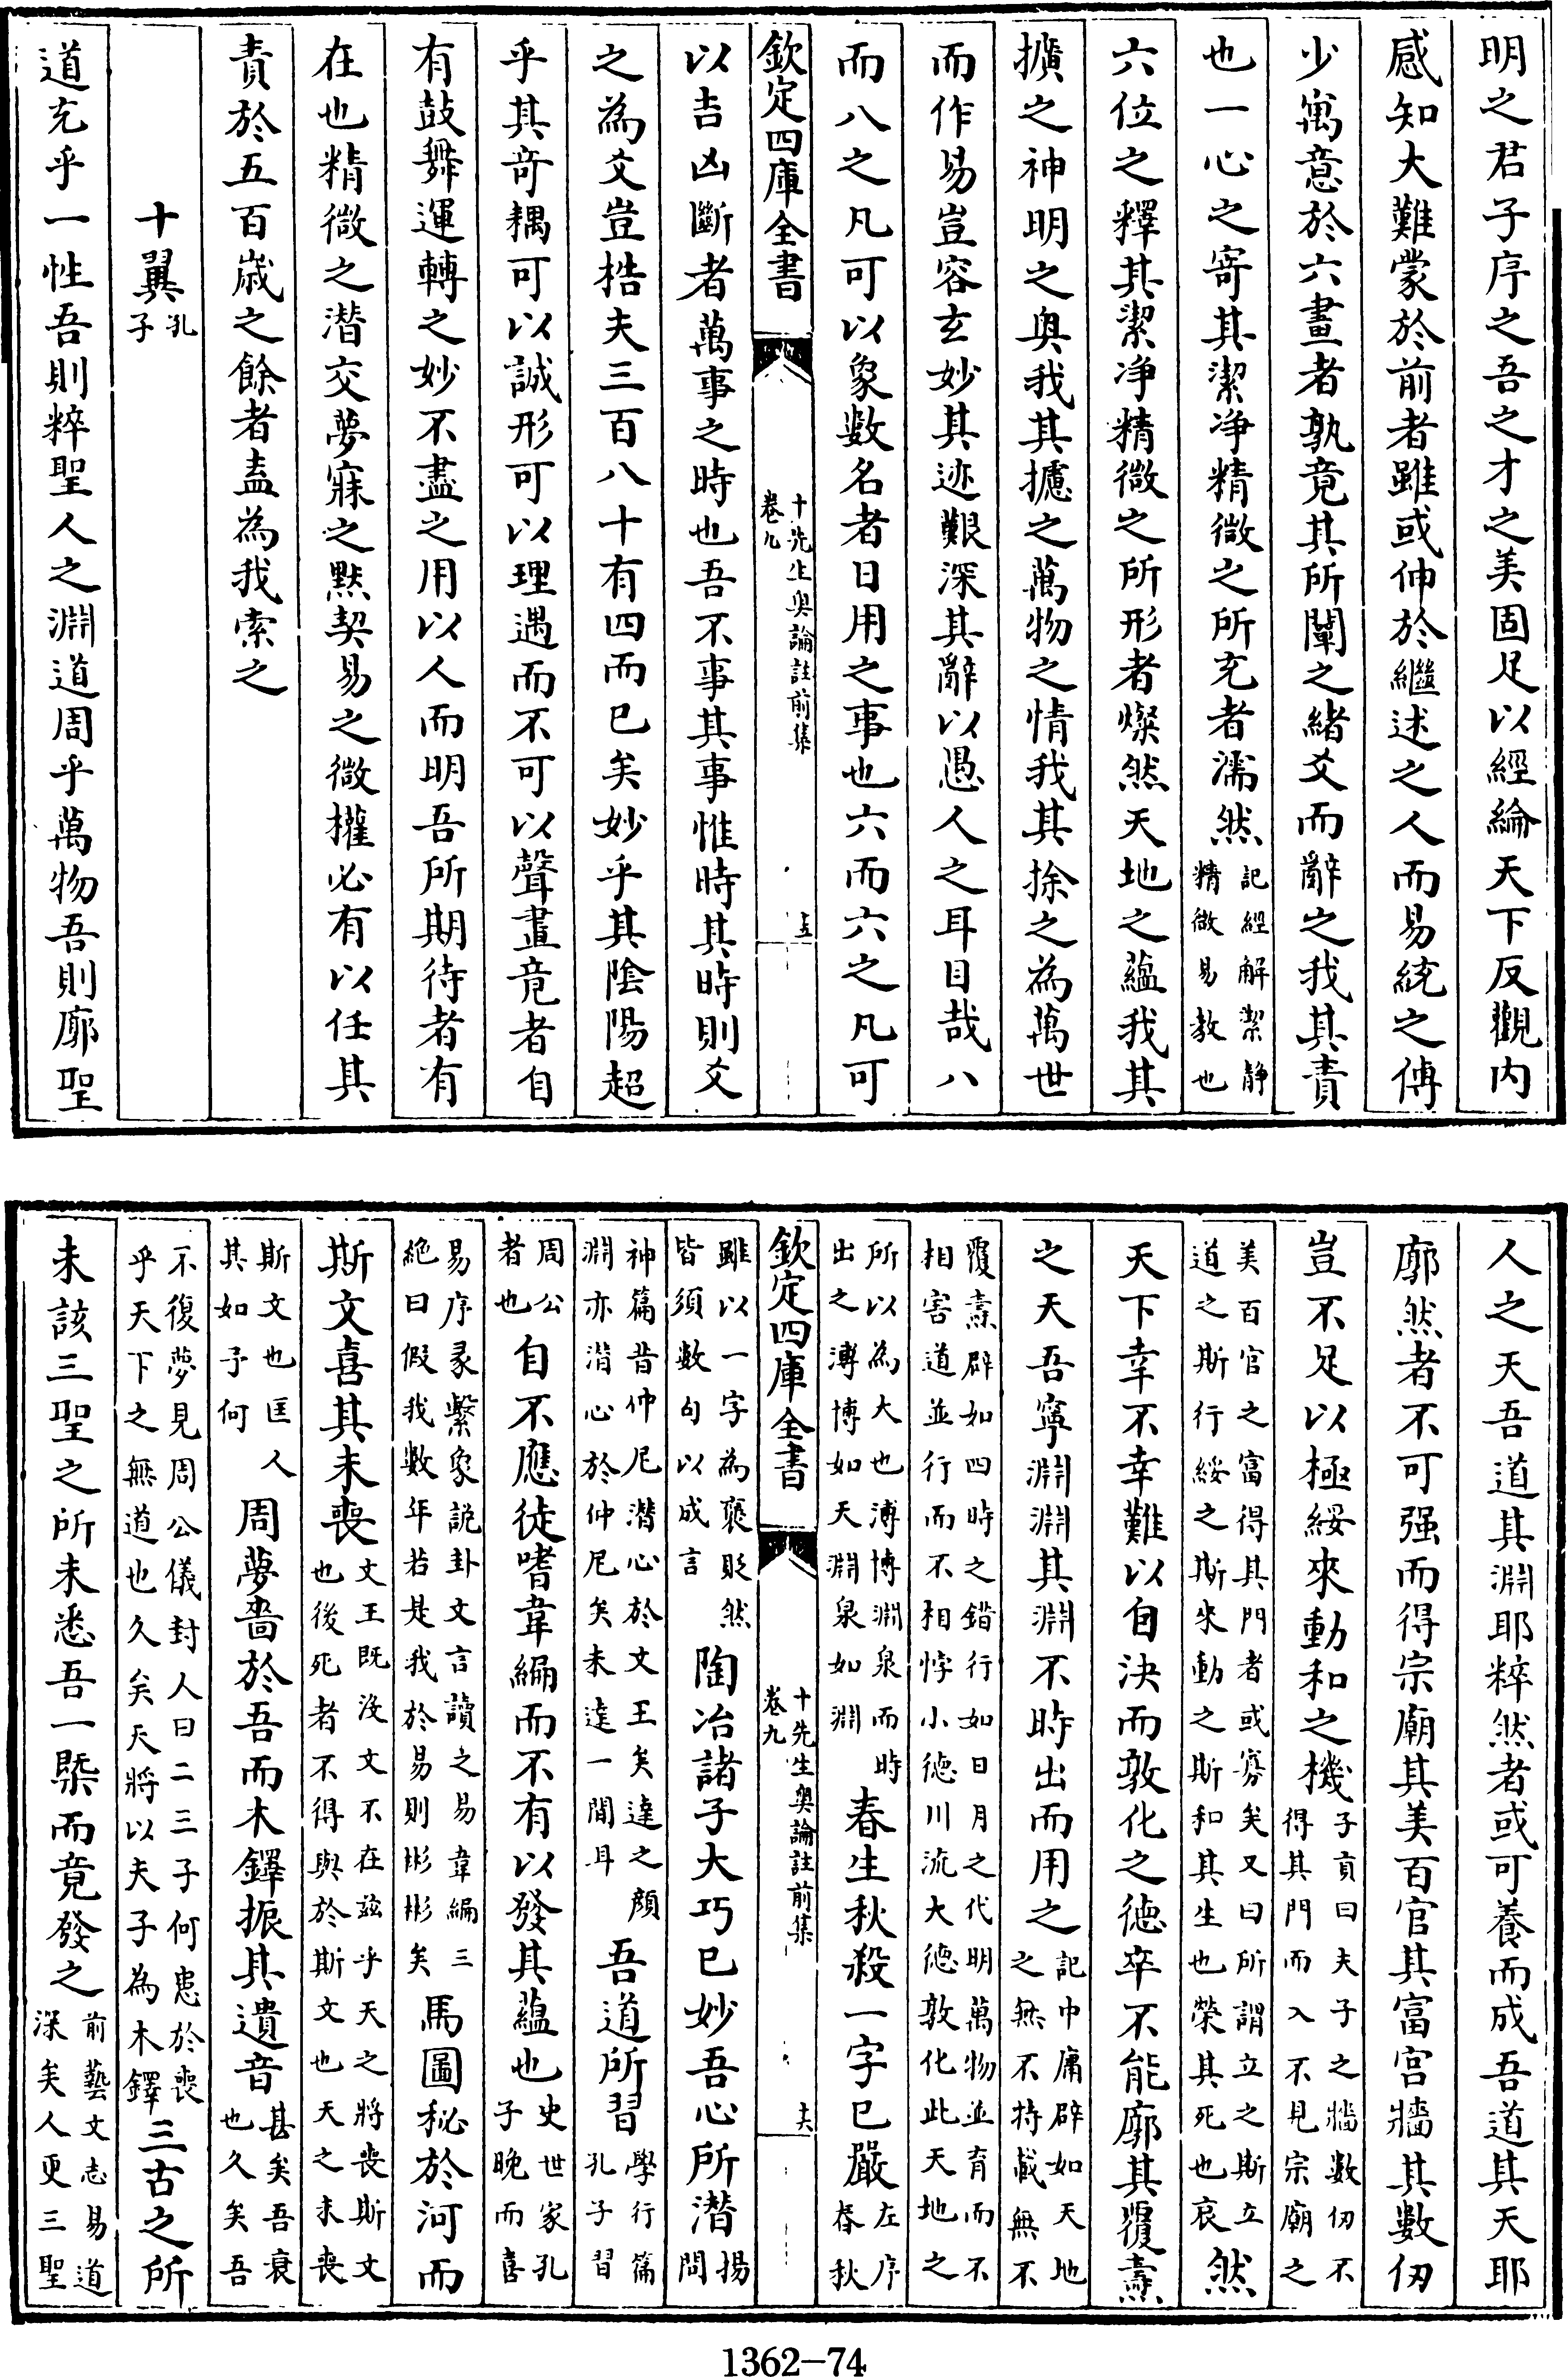 明之君子序之吾之才之美固足以經綸天下反觀内
感知大難蒙於前者雖或伸於繼述之人而易統之傳
少寓意於六畫者孰竟其所闡之緒爻而辭之我其責
也一心之寄其潔净精微之所充者濡然記經解絜静精微易教也
六位之釋其潔净精微之所形者燦然天地之藴我其
擴之神明之奥我其攄之萬物之情我其捈之為萬世
而作易豈容玄妙其迹艱深其辭以愚人之耳目哉八
而八之凡可以象數名者日用之事也六而六之凡可
欽定四庫全書
十先生奥論註前集
卷九
十五
以吉凶斷者萬事之時也吾不事其事惟時其時則爻
之為爻豈梏夫三百八十有四而已矣妙乎其陰陽超
乎其竒耦可以誠形可以理遇而不可以聲畫竟者自
有鼓舞運轉之妙不盡之用以人而明吾所期待者有
在也精微之潜交夢寐之黙契易之微權必有以任其
責於五百嵗之餘者盍為我索之
十翼孔子
道充乎一性吾則粹聖人之淵道周乎萬物吾則廓聖
人之天吾道其淵耶粹然者或可養而成吾道其天耶
廓然者不可强而得宗廟其美百官其富宫牆其數仞
豈不足以極綏來動和之機子貢曰夫子之牆數仞不得其門而入不見宗廟之
美百官之富得其門者或寡矣又曰所謂立之斯立道之斯行綏之斯來動之斯和其生也榮其死也哀然
天下幸不幸難以自決而敦化之徳卒不能廓其覆燾
之天吾寧淵淵其淵不時出而用之記中庸辟如天地之無不持載無不
覆燾辟如四時之錯行如日月之代明萬物並育而不相害道並行而不相悖小徳川流大徳敦化此天地之
所以為大也溥博淵泉而時出之溥博如天淵泉如淵春生秋殺一字已嚴左序春秋
欽定四庫全書
十先生奥論註前集
卷九
十六
雖以一字為褒貶然皆須數句以成言陶冶諸子大巧已妙吾心所潜揚問
神篇昔仲尼潜心於文王矣達之顔淵亦潜心於仲尼矣未達一間耳吾道所習學行篇孔子習
周公者也自不應徒嗜韋編而不有以發其藴也史世家孔子晚而喜
易序彖繫象説卦文言讀之易韋編三絶曰假我數年若是我於易則彬彬矣馬圖秘於河而
斯文喜其未喪文王既没文不在兹乎天之將喪斯文也後死者不得與於斯文也天之未喪
斯文也匡人其如予何周夢啬於吾而木鐸振其遺音甚矣吾衰也久矣吾
不復夢見周公儀封人曰二三子何患於喪乎天下之無道也久矣天將以夫子為木鐸三古之所
未該三聖之所未悉吾一槩而竟發之前藝文志易道深矣人更三聖
1362-74